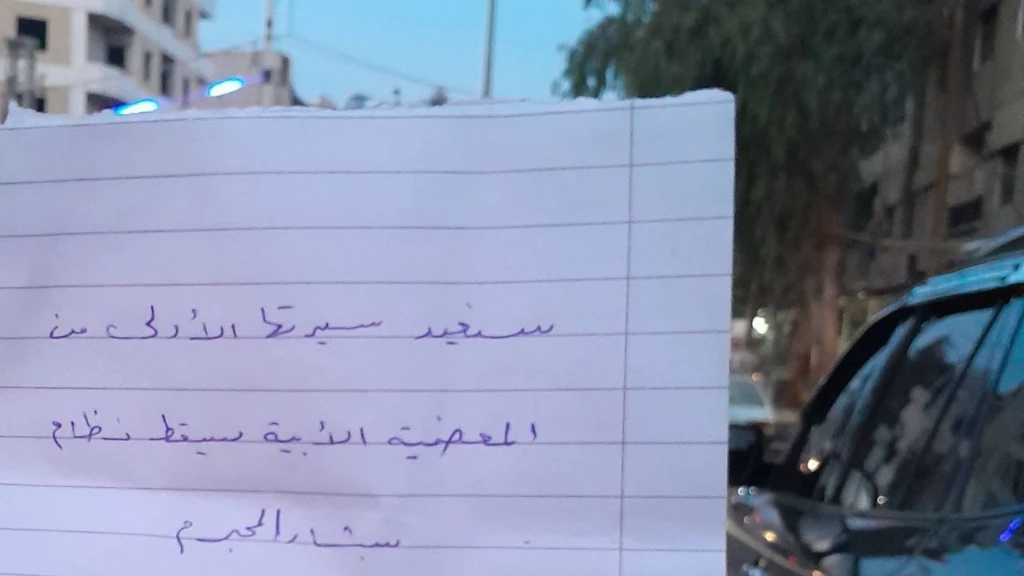 سنعيد سيرتها الأولى من
المعضمية الأبية سيسقط نظام
بشار المجرم